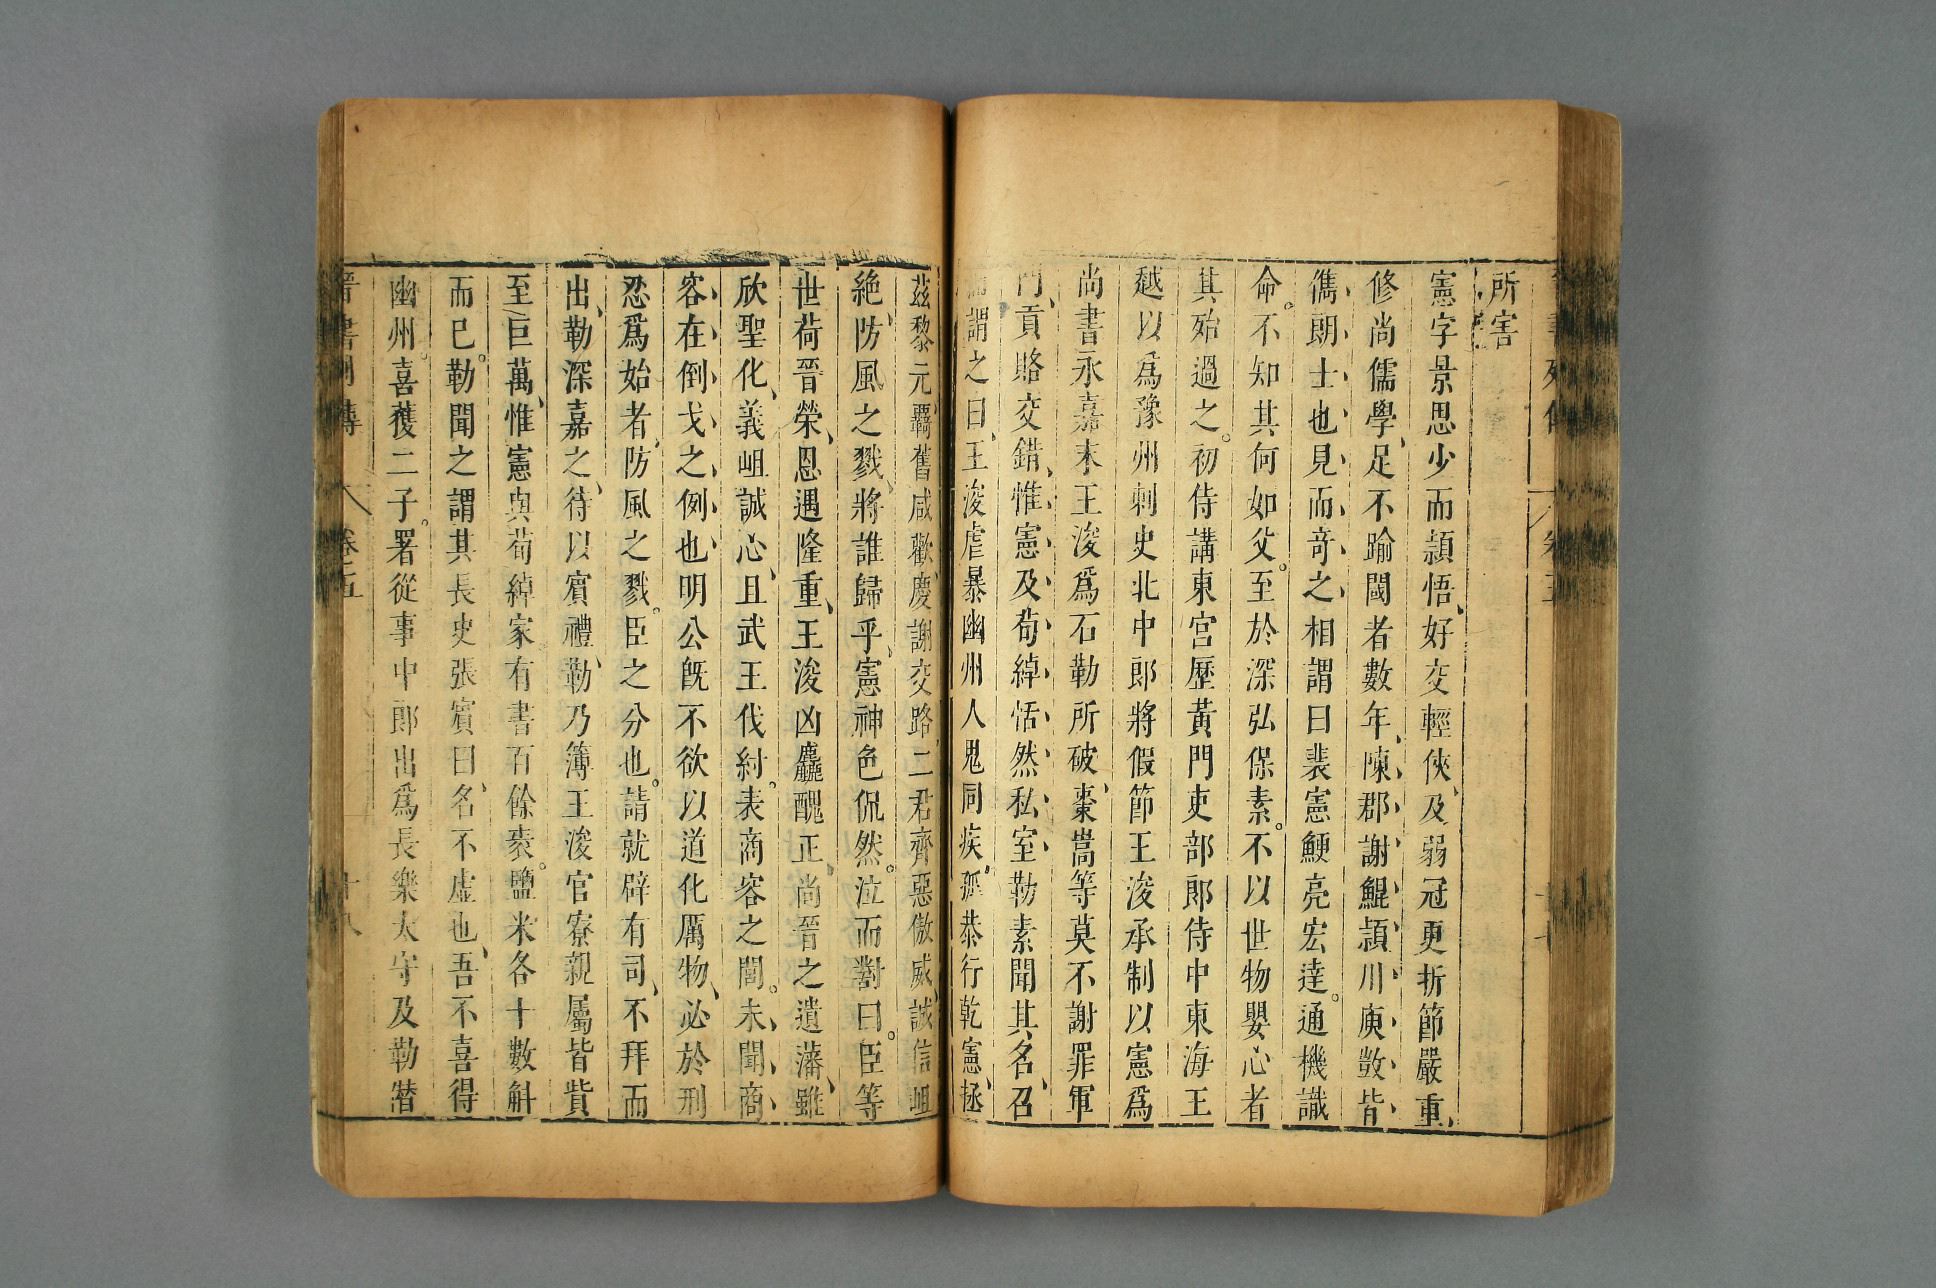 所害
憲字景思少而頴悟、好交輕俠、及弱冠更折節嚴重、
修尚儒學、足不踰閾者數年、陳郡謝鯤頴川庾敳皆
儁朗士也、見而竒之、相謂曰裴憲鯁亮宏達。通機識
命。不知其何如父。至於深弘保素。不以世物嬰心者
其殆過之。初侍講東宮歷黃門吏部郎侍中東海王
越以爲豫州刺史北中郎將假節王浚承制以憲爲
尚書永嘉末王浚爲石勒所破、棗嵩等莫不謝罪軍
門、貢賂交錯、惟憲及荀綽恬然私室、勒素聞其名、召
而謂之曰、王浚虐暴幽州人鬼同疾、孤恭行乾憲、拯
茲黎元、覊舊咸歡、慶謝交路、二君齊惡傲威、誠信岨
絶、防風之戮、將誰歸乎、憲神色侃然。泣而對曰。臣等
世荷晉榮、恩遇隆重、王浚凶麤醜正、尚晉之遺藩、雖
欣聖化、義岨誠心、且武王伐紂。表商容之閭。未聞商
容在倒戈之例也明公旣不欲以道化厲物、必於刑
忍爲始者、防風之戮。臣之分也。請就辟有司、不拜而
出、勒深嘉之、待以賓禮、勒乃簿王浚官寮親屬皆貲
至巨萬、惟憲與荀綽家有書百餘袠。鹽米各十數斛
而已。勒聞之謂其長史張賓曰、名不虛也、吾不喜得
幽州。喜獲二子。署從事中郎出爲長樂太守及勒僭
晉書列傳 卷之五 十八